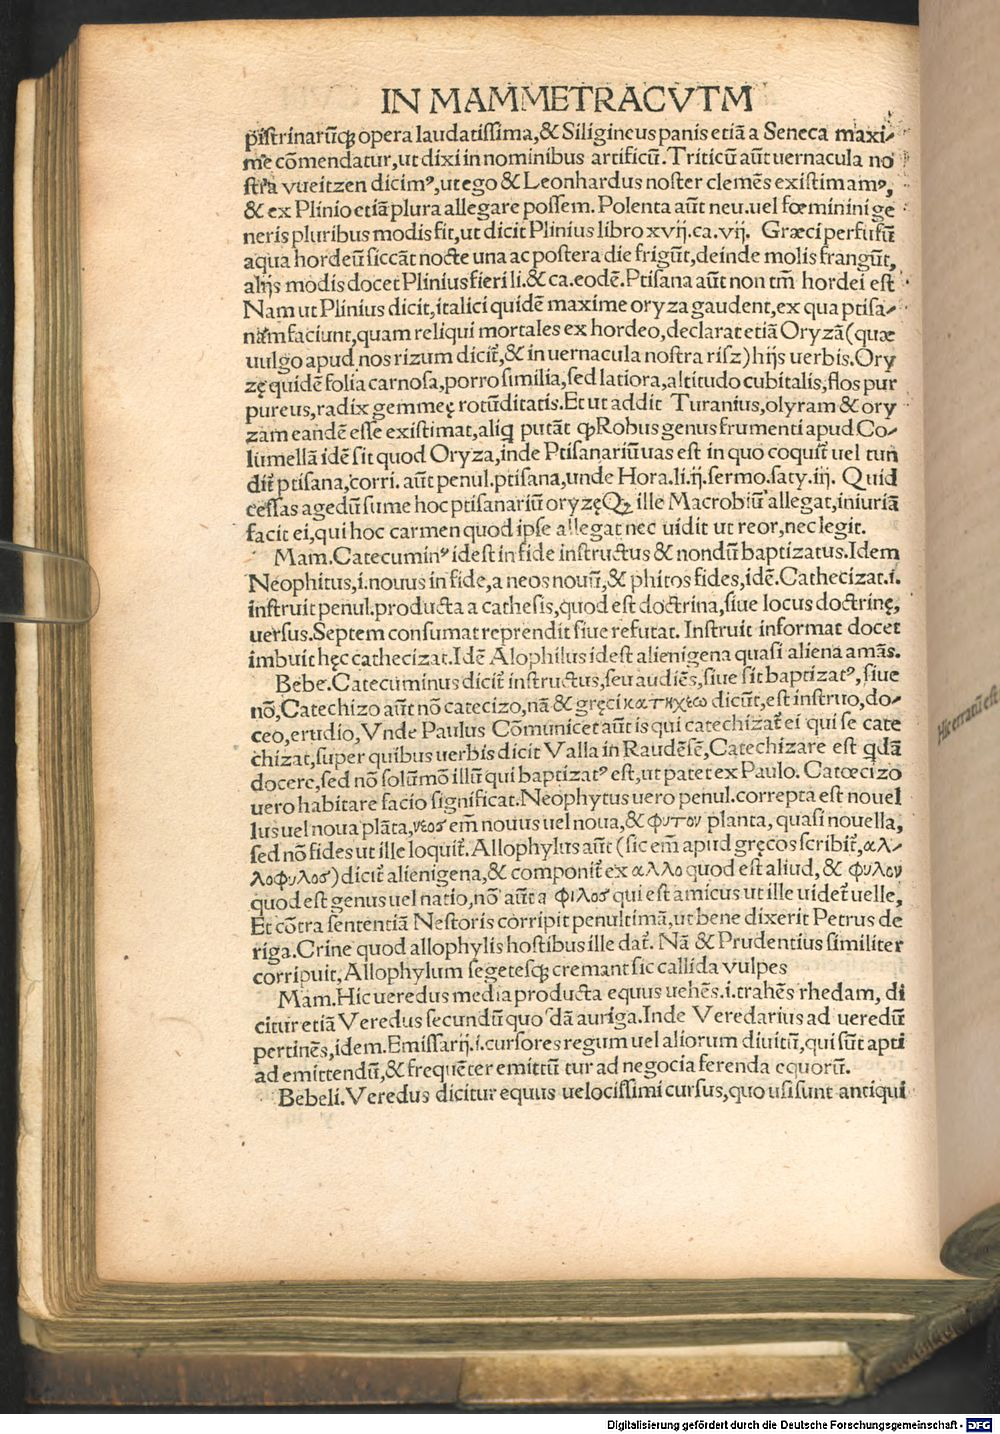 IN MAMMETRACVTM
pistrinarūq; opera laudatissima,& Siligineus panis etiā a Seneca maxi⸗
me cōmendatur,ut dixi in nominibus artificū.Triticū aūt uernacula no
stra vueitzen dicimꝰ,ut ego & Leonhardus noster clemēs existimamꝰ,
& ex Plinio etiā plura allegare possem.Polenta aūt neu.uel fœminini ge
neris pluribus modis fit,ut dicit Plinius libro xvij.ca.vij. Græci perfusū
aqua hordeū siccāt nocte una ac postera die frigūt,deinde molis frangūt,
alijs modis docet Plinius fieri li.& ca.eodē.Ptisana aūt non tm̄ hordei est
Nam ut Plinius dicit,italici quidē maxime oryza gaudent,ex qua ptisa⸗
nam faciunt,quam reliqui mortales ex hordeo,declarat etiā Oryzā(quæ
uulgo apud nos rizum dicit᷑,& in uernacula nostra risz)hijs uerbis.Ory
zę quidē folia carnosa,porro similia,sed latiora,altitudo cubitalis,flos pur
pureus,radix gemmeę rotūditatis.Et ut addit Turanius,olyram & ory
zam eandē esse existimat,aliq putāt ꝙ Robus genus frumenti apud Co⸗
lumellā idē sit quod Oryza,inde Ptisanariū uas est in quo coquit᷑ uel tun
dit᷑ ptisana,corri. aūt penul.ptisana,unde Hora.li.ij.sermo.saty.iij. Quid
cessas agedū sume hoc ptisanariū oryzęQꝫ ille Macrobiū allegat,iniuriā
facit ei,qui hoc carmen quod ipse allegat nec uidit ut reor,nec legit.
Mam.Catecuminꝰ idest in fide instructus & nondū baptizatus.Idem
Neophitus,i.nouus in fide,a neos nouū,& phitos fides,idē.Cathecizat.i.
instruit penul.producta a cathesis,quod est doctrina,siue locus doctrinę,
uersus.Septem consumat reprendit siue refutat. Instruit informat docet
imbuit hęc cathecizat.Idē Alophilus idest alienigena quasi aliena amās.
Bebe.Catecuminus dicit᷑ instructus,seu audiēs,siue sit baptizatꝰ,siue
nō,Catechizo aūt nō catecizo,nā & gręci κατηχέω dicūt,est instruo,do⸗
ceo,erudio,Vnde Paulus Cōmunicet aūt is qui catechizat᷑ ei qui se cate
chizat,super quibus uerbis dicit Valla in Raudēsē,Catechizare est qdā
docere,sed nō solūmō illū qui baptizatꝰ est,ut patet ex Paulo. Catœcizo
uero habitare facio significat.Neophytus uero penul.correpta est nouel
lus uel noua plāta,νεοσ em̄ nouus uel noua,& φυτον planta, quasi nouella,
sed nō fides ut ille loquit᷑.Allophylus aūt (sic em̄ apud gręcos scribit᷑,αλ⸗
λοφυλοσ)dicit᷑ alienigena,& componit᷑ ex αλλο quod est aliud, & φυλον
quod est genus uel natio,nō aūt a φιλοσ qui est amicus ut ille uidet᷑ uelle,
Et cōtra sententiā Nestoris corripit penultimā,ut bene dixerit Petrus de
riga.Crine quod allophylis hostibus ille dat᷑. Nā & Prudentius similiter
corripuit,Allophylum segetesq; cremant sic callida vulpes
Mam.Hic ueredus media producta equus uehēs.i.trahēs rhedam, di
citur etiā Veredus secundū quosdā auriga.Inde Veredarius ad ueredū
pertinēs,idem.Emissarij.i.cursores regum uel aliorum diuitū,qui sūt apti
ad emittendū,& frequēter emittū tur ad negocia ferenda equorū.
Bebeli.Veredus dicitur equus uelocissimi cursus,quo usi sunt antiqui
Hic erratū est
Digitalisierung gefördert durch die Deutsche Forschungsgemeinschaft - DFG